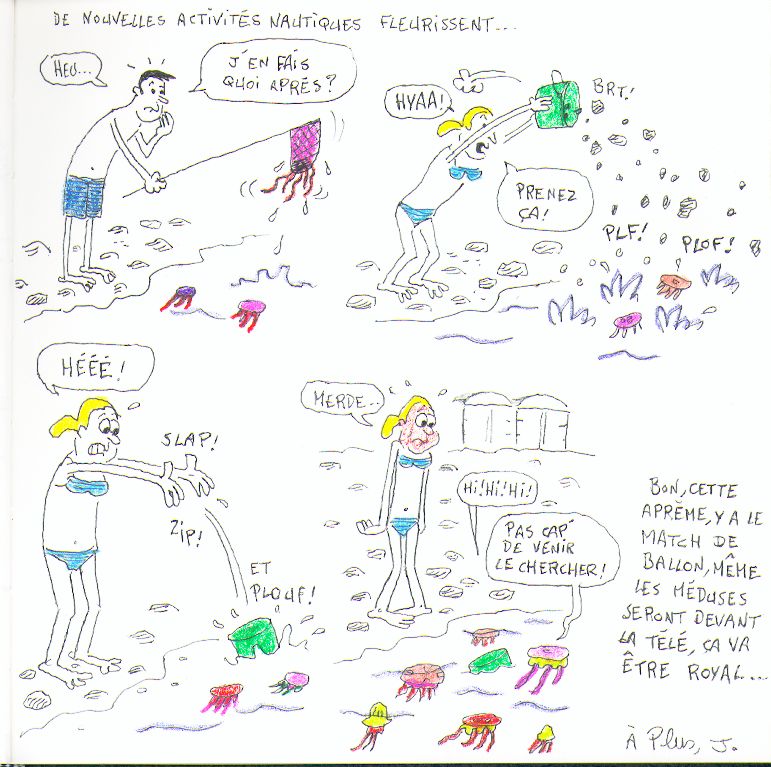 DE NOUVELLES ACTIVITÉS NAUTIQUES FLEURISSENT...
HEU...
J'EN FAIS
QUOI APRÉS?
HYAA!
BRT!
PRENEZ
ÇA!
PLF!
PLOF!
HÉÉÉ!
SLAP!
ZIP!
ET
PLOUF!
MERDE..
HI!HI!HI!
PAS CAP'
DE VENIR
LE CHERCHER!
BON, CETTE
APRÈME, Y A LE
MATCH DE
BALLON, MÊME
LES MÉDUSES
SERONT DEVANT
LA TÉLÉ, ÇA VA
ÊTRE ROYAL...
À Plus, J.